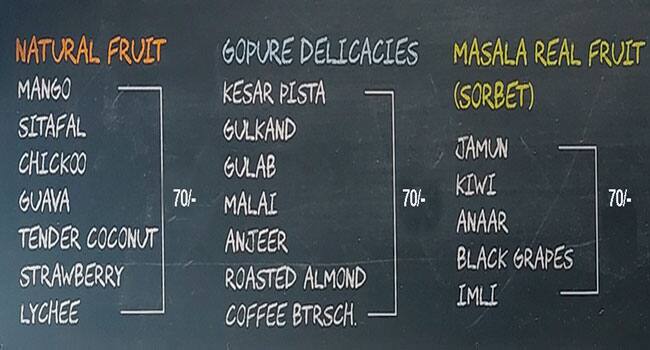 NATURAL FRUIT
MANGO
SITAFAL
CHICKOO
GUAVA
TENDER COCONUT
STRAWBERRY
LYCHEE
70/-
GOPURE DELICACIES
KESAR PISTA
GULKAND
GULAB
MALAI
ANJEER
ROASTED ALMOND
COFFEE BTRSCH.
70/-
MASALA REAL FRUIT
(SORBET)
JAMUN
KIWI
ANAAR
BLACK GRAPES
IMLI
70/-